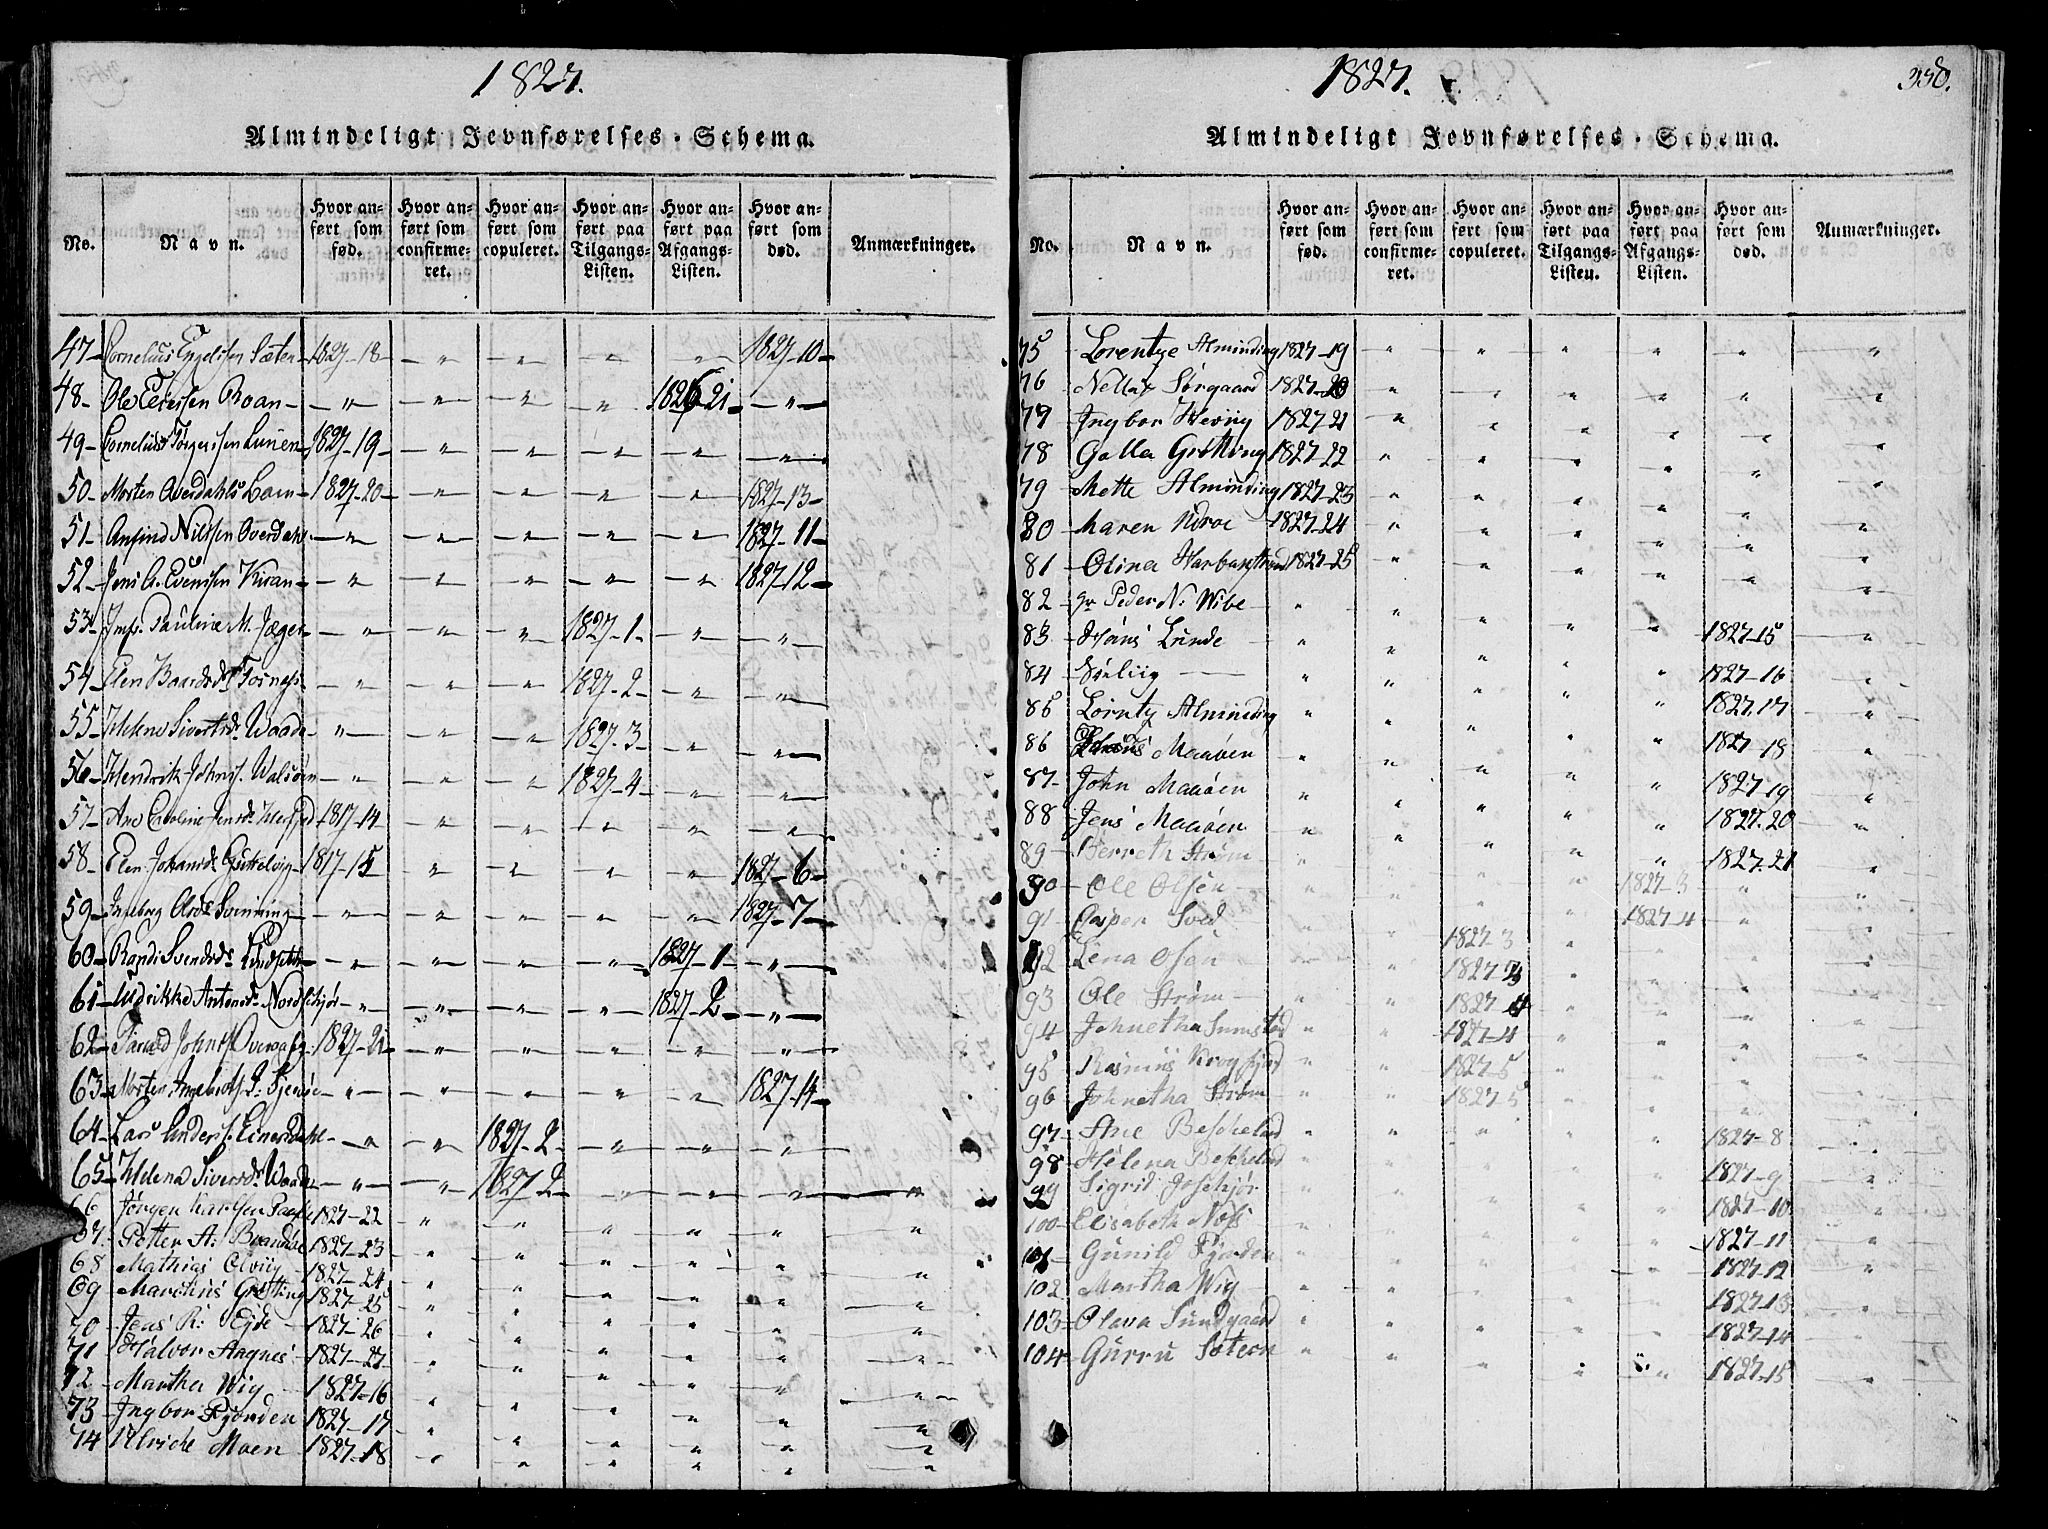 1827.
Almindeligt Jevnførelses-Schema.
No. Navn. Hvor anført som fød. Hvor anført som confirmeret. Hvor anført som copuleret. Hvor anført paa Tilgangs-Listen. Hvor anført paa Afgangs-Listen. Hvor anført som død. Anmærkninger.
47 Cornelius Engelssen Sæter 1827-18 " " " " 1827-10
48 Ole Pedersen Roan " " " " 1826-21 "
49 Cornelius Torgerssen 1827-19 " " " " "
50 Morten Overdahls Barn 1827-20 " " " " 1827-13
51 Anfind Nilssen Overdahl " " " " " 1827-11
52 Jens A. Evenssen Kiran " " " " " 1827-12
53 Jmfr. Pauline M. Jæger " " " 1827-1 " "
54 Elen Baardsd. " " " 1827-2 " "
55 Helene Sivertsd. Waade " " " 1827-3 " "
56 Hendrik Johns. Walsøen " " " 1827-4 " "
57 Ane Caroline Jensd. 1817-14 " " " " "
58 Elen Johansd. 1817-15 " " " " 1827-6
59 Ingebrg Olsd. Svenning " " " " " 1827-7
60 Randi Svendsd. " " " " 1827-1 "
61 Antonsd. Nordskjør " " " " 1827-2 "
62 Johns. 1827-21 " " " " "
63 Morten " " " " " 1827-14
64 Lars Anders. Einersdahl " " 1827-2 " " "
65 Helena Siversd. Waade " " 1827-2 " " " "
66 Jørgen Karlsen 1827-22 " " " " " "
67 Petter A. Brandsøe 1827-23 " " " " " "
68 Mathias 1827-24 " " " " " "
69 Marthus Grøtting 1827-25 " " " " " "
70 Jens R. Eide 1827-26 " " " " " "
71 Halvor Aagnes 1827-27 " " " " " "
72 Martha Wig 1827-16 " " " " " "
73 Ingbor Fjorden 1827-17 " " " " " "
74 Ulriche Moen 1827-18 " " " " " "
1827.
330.
Almindeligt Jevnførelses-Schema.
No. Navn. Hvor anført som fød. Hvor anført som confirmeret. Hvor anført som copuleret. Hvor anført paa Tilgangs-Listen. Hvor anført paa Afgangs-Listen. Hvor anført som død. Anmærkninger.
75 Lorentze Alminding 1827-19 " " " " " "
76 Nella Sørgaard 1827-20 " " " " " "
77 Ingbor Herviig 1827-21 " " " " " "
78 Golla Grøtting 1827-22 " " " " " "
79 Mette Alminding 1827-23 " " " " " "
80 Maren 1827-24 " " " " " "
81 Olina Harbachstrand 1827-25 " " " " " "
82 Hr Peder N. Wibe " " " " " 1827-15 "
83 Hans Lunde " " " " " 1827-16 "
84 Sørliig " " " " " 1827-17 "
85 Lorntz Alminding " " " " " 1827-18 "
86 Maaøen " " " " " 1827-19 "
87 John Maaøen " " " " " 1827-20 "
88 Jens Maaøen " " " " " 1827-21 "
89 Berreth Strøm " " " " 1827-3 " "
90 Ole Olsen " " " " 1827-4 " "
91 Casper Sved " " 1827-3 " " " "
92 Lena Osen " " 1827-3 " " " "
93 Ole Strøm " " 1827-4 " " " "
94 Johnetha Sumstad " " 1827-4 " " " "
95 Rasmus Krogfjord " " 1827-5 " " " "
96 Johnetha Strøm " " 1827-5 " " " "
97 Ane Beskeland " " " " " 1827-8 "
98 Helena Beskeland " " " " " 1827-9 "
99 Sigrid " " " " " 1827-10 "
100 Elisabeth " " " " " 1827-11 "
101 Gunild Fjorden " " " " " 1827-12 "
102 Martha Wig " " " " " 1827-13 "
103 Olava Sundgaard " " " " " 1827-14 "
104 Gurru Sæteren " " " " " 1827-15 "